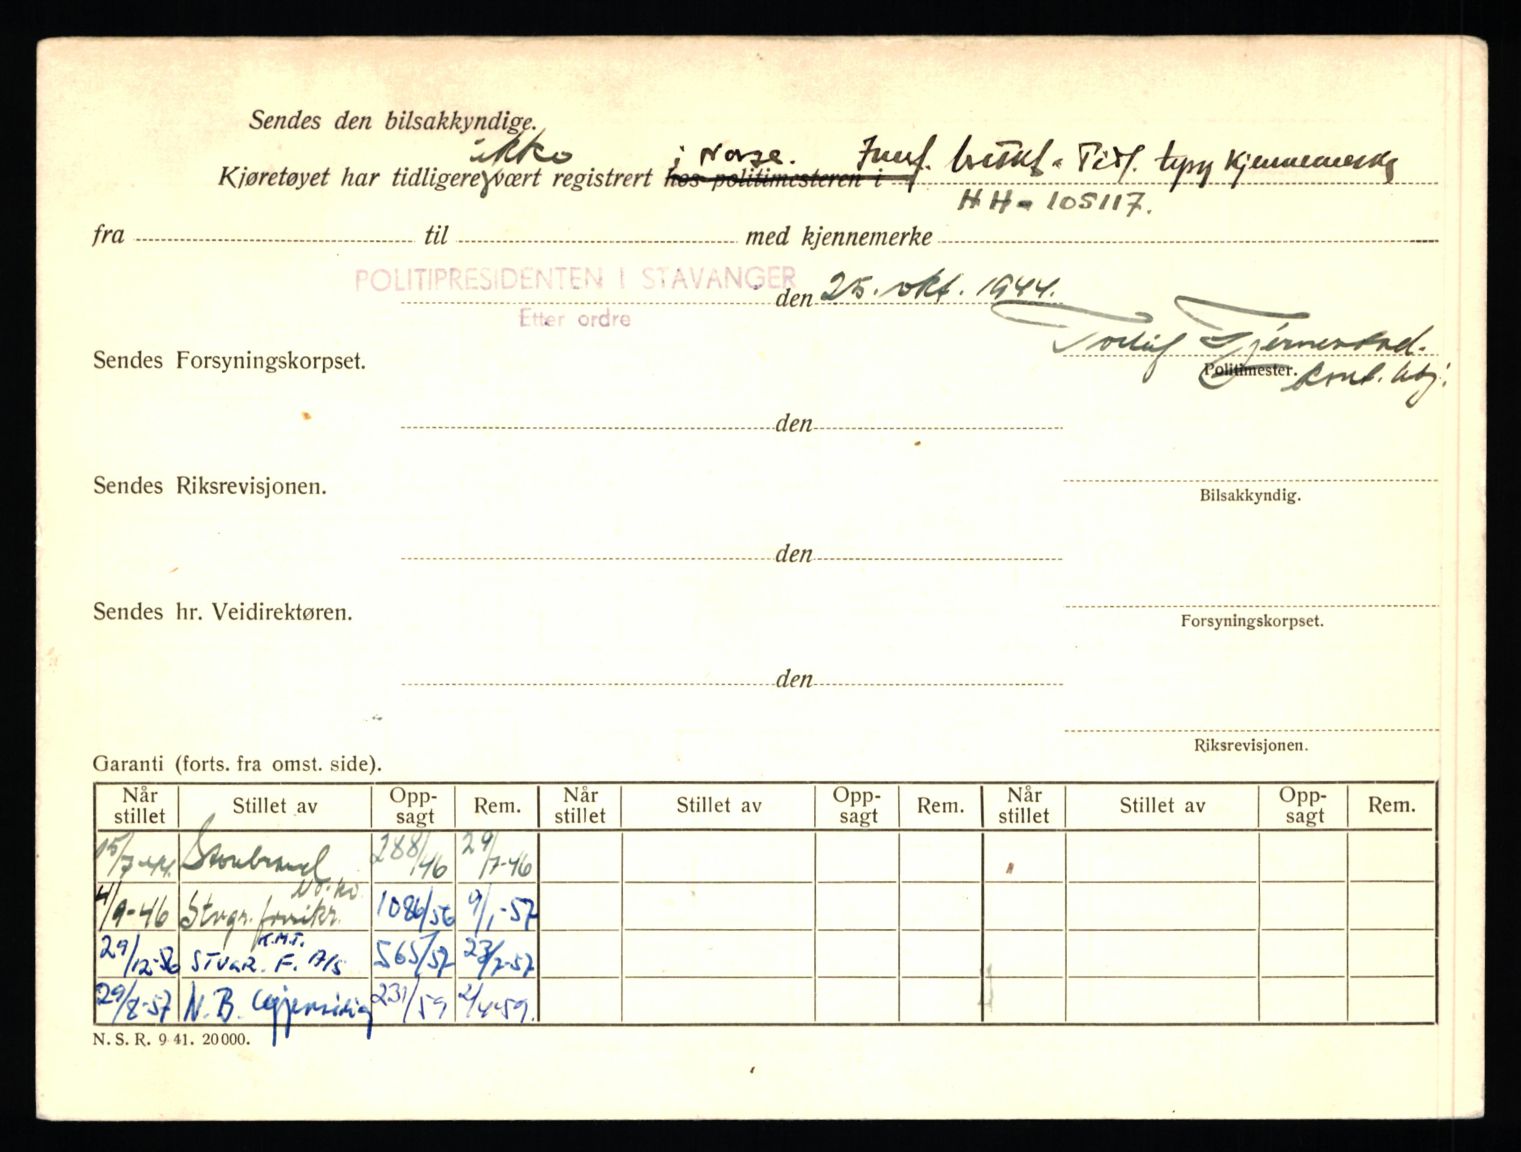 Sendes den bilsakkyndige.
ikke i Norge. Tidl. tysk kjennemerke
Kjøretøyet har tidligere vært registrert hos politimesteren i
HH-105117.
fra til med kjennemerke
POLITIPRESIDENTEN I STAVANGER
den 25. okt. 1944.
Etter ordre
Sendes Forsyningskorpset.
Politimester.
den
Sendes Riksrevisjonen.
Bilsakkyndig.
den
Sendes hr. Veidirektøren.
Forsyningskorpset.
den
Riksrevisjonen.
Garanti (forts. fra omst. side).
Når stillet Stillet av Opp-sagt Rem. Når stillet Stillet av Opp-sagt Rem. Når stillet Stillet av Opp-sagt Rem.
15/7-44. Storebrand 288/46 29/7-46
4/9-46 Stvgr. forsikr. 1086/56 9/1-57
29/12-56 STVGR. F. A/S 565/57 23/7-57
29/8-57 N.B. Gjensidig 231/59 2/4-59.
N. S. R. 9 41. 20 000.